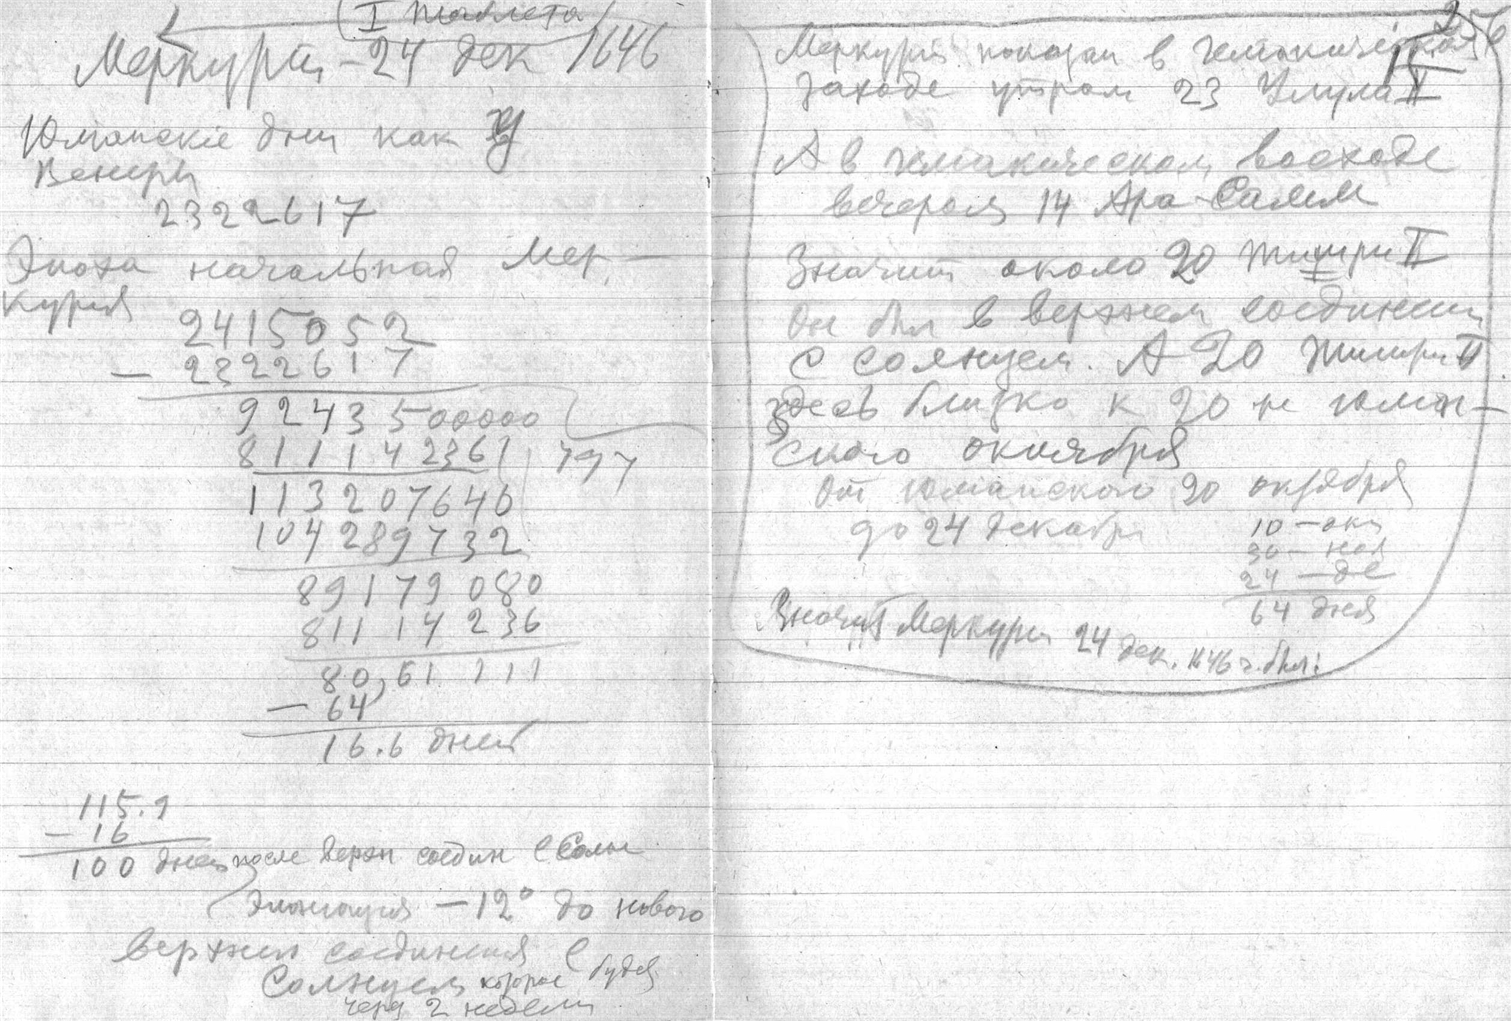 I таблета
Меркурий - 24 дек 1646
Юлианские дни как у
Венеры
2322617
Эпоха начальная Мер-
курия
2415052
- 2322617
92435 00000
8111 42361 | 797
113207646
104289732
89179 080
81114 236
80,61 111
- 64
16.6 дней
115.9
- 16
100 дней после верхн соедин с Солн
Элонгация -12° до нового
верхнего соединения с
Солнцем которое будет
через 2 недели
256
Меркурий показан в гелиакическом
заходе утром 23 Улула II
А в гелиакическом восходе
вечером 14 Ара-Самм
Значит около 20 Тишри II
он был в верхнем соединении
с солнцем. А 20 Тишри II
здесь близко к 20 юлиан-
ского октября
От юлианского 20 октября
до 24 декабря
10 - окт
30 - ноя
24 - де
64 дня
Значит Меркурий 24 дек. 1646 г. был: